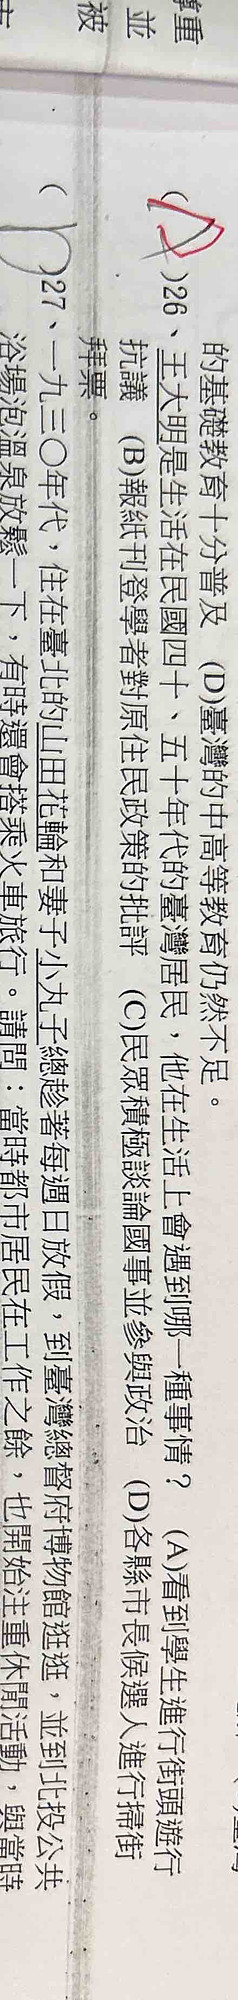 尊重
並
被
的基礎教育十分普及 (D)臺灣的中高等教育仍然不足。
( )26、王大明是生活在民國四十、五十年代的臺灣居民，他在生活上會遇到哪一種事情？ (A)看到學生進行街頭遊行
抗議 (B)報紙刊登學者對原住民政策的批評 (C)民眾積極談論國事並參與政治 (D)各縣市長候選人進行掃街
拜票。
( D )27、一九三〇年代，住在臺北的山田花輪和妻子小丸子總趁著每週日放假，到臺灣總督府博物館逛逛，並到北投公共
浴場泡溫泉放鬆一下，有時還會搭乘火車旅行。請問：當時都市居民在工作之餘，也開始注重休閒活動，與當時